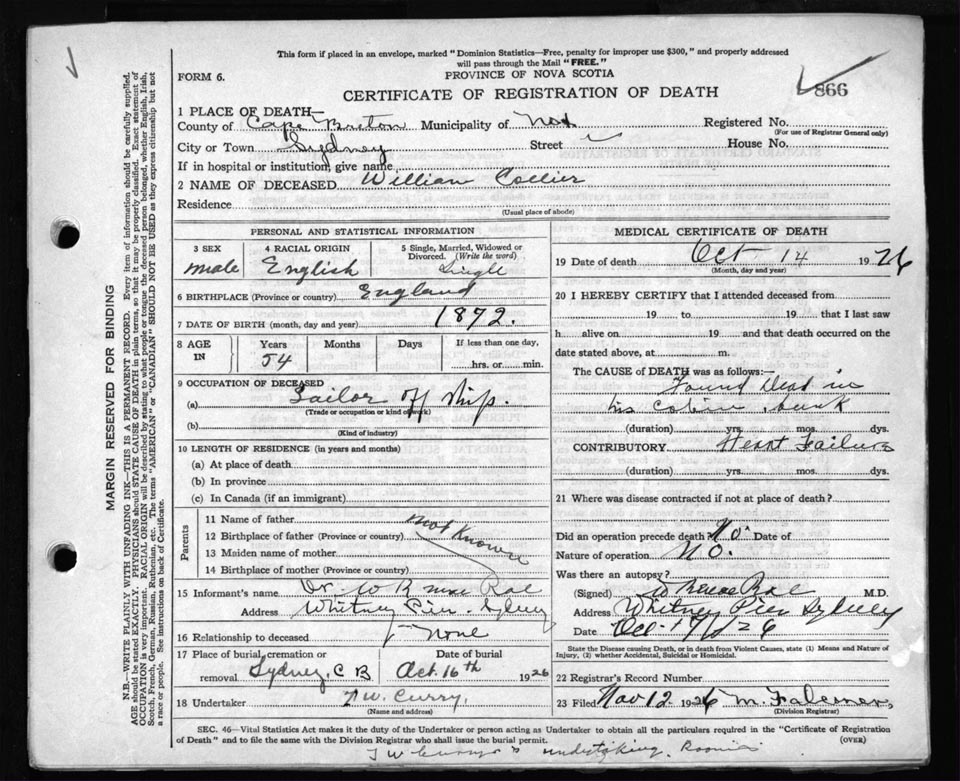 This form if placed in an envelope, marked "Dominion Statistics—Free, penalty for improper use $300," and properly addressed
will pass through the Mail "FREE."
FORM 6.
PROVINCE OF NOVA SCOTIA
CERTIFICATE OF REGISTRATION OF DEATH
866
1 PLACE OF DEATH—
County of Cape Breton Municipality of Registered No.
(For use of Registrar General only)
City or Town Sydney Street House No.
If in hospital or institution, give name
2 NAME OF DECEASED William Collier
Residence
(Usual place of abode)
PERSONAL AND STATISTICAL INFORMATION
3 SEX
male
4 RACIAL ORIGIN
English
5 Single, Married, Widowed or
Divorced. (Write the word)
Single
6 BIRTHPLACE (Province or country) England
7 DATE OF BIRTH (month, day and year) 1872.
8 AGE IN
Years 54
Months
Days
If less than one day,
hrs. or min.
9 OCCUPATION OF DECEASED
(a) Sailor off ship.
(Trade or occupation or kind of work)
(b)
(Kind of industry)
10 LENGTH OF RESIDENCE (in years and months)
(a) At place of death
(b) In province
(c) In Canada (if an immigrant)
Parents
11 Name of father
12 Birthplace of father (Province or country)
13 Maiden name of mother
14 Birthplace of mother (Province or Country)
not Known
15 Informant's name Dr. W B Rae
Address Whitney Pier Sydney
16 Relationship to deceased None
17 Place of burial, cremation or
removal Sydney, C B
Date of burial
Oct. 16th 1926
18 Undertaker W. Curry,
(Name and address)
MEDICAL CERTIFICATE OF DEATH
19 Date of death Oct 14 1926
(Month, day and year)
20 I HEREBY CERTIFY that I attended deceased from
19 to 19 that I last saw
h alive on 19 and that death occurred on the
date stated above, at m.
The CAUSE of DEATH was as follows:—
Found Dead in
his cabin bunk
(duration) yrs. mos. dys.
CONTRIBUTORY Heart Failure
(duration) yrs. mos. dys.
21 Where was disease contracted if not at place of death?
Did an operation precede death No. Date of
Nature of operation NO.
Was there an autopsy?
(Signed) Rae M.D.
Address Whitney Pier Sydney
Date Oct 26
State the Disease causing Death, or in death from Violent Causes, state (1) Means and Nature of
Injury, (2) whether Accidental, Suicidal or Homicidal.
22 Registrar's Record Number
23 Filed Nov 12 1926 M.
(Division Registrar)
SEC. 46—Vital Statistics Act makes it the duty of the Undertaker or person acting as Undertaker to obtain all the particulars required in the "Certificate of Registration
of Death" and to file the same with the Division Registrar who shall issue the burial permit.
(OVER)
undertaking Rooms
MARGIN RESERVED FOR BINDING
N.B.—WRITE PLAINLY WITH UNFADING INK—THIS IS A PERMANENT RECORD. Every item of information should be carefully supplied.
AGE should be stated EXACTLY. PHYSICIANS should STATE CAUSE OF DEATH in plain terms, so that it may be properly classified. Exact statement of
OCCUPATION is very important. RACIAL ORIGIN will be described by stating to what people or tongue the deceased person belonged, whether English, Irish,
Scotch, French, German, Russian, Ruthenian, etc. The terms "AMERICAN" or "CANADIAN" SHOULD NOT BE USED as they express citizenship but not
a race or people. See instructions on back of Certificate.